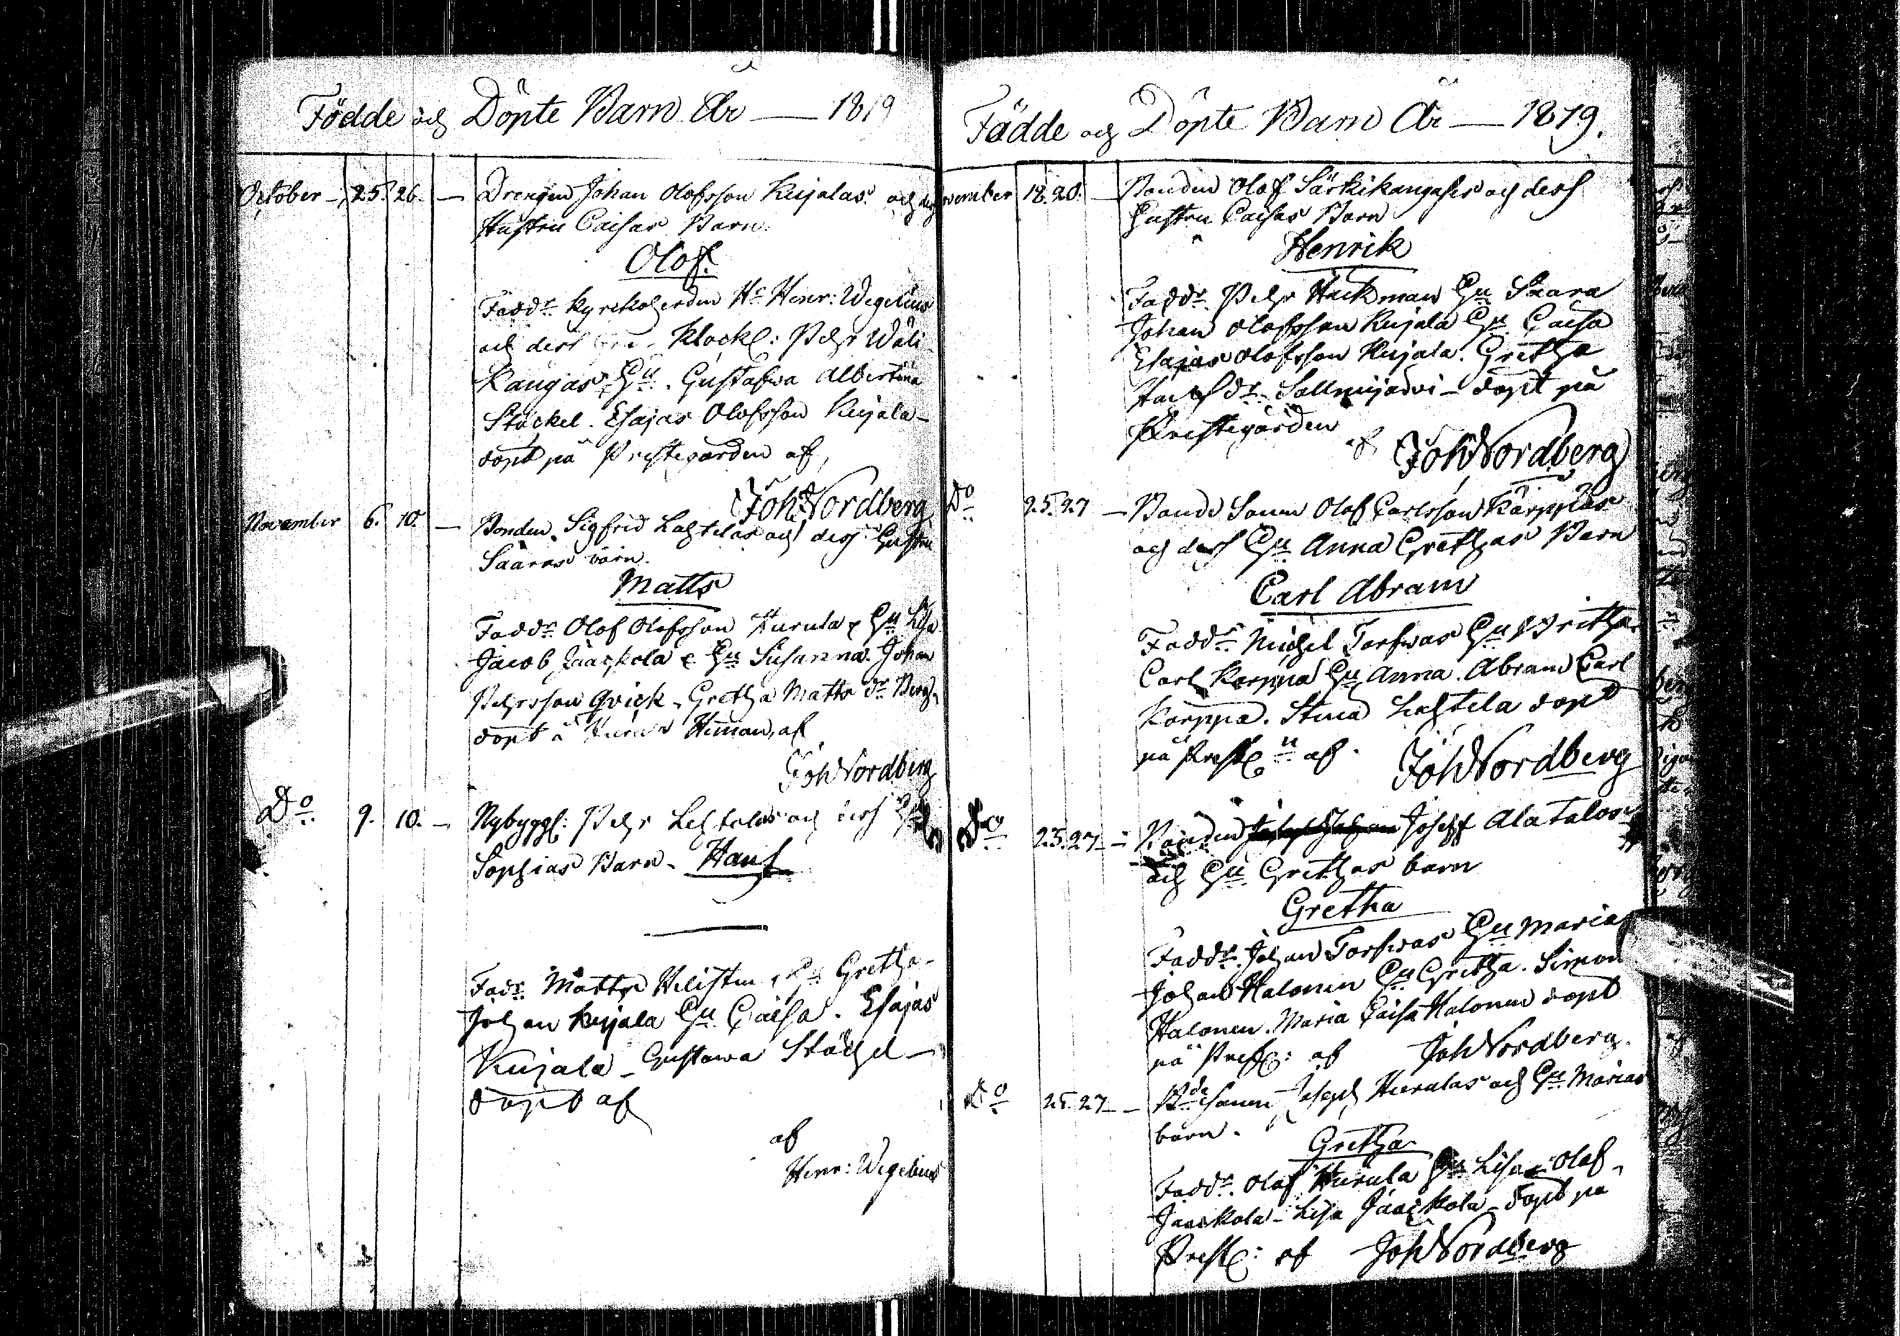 Födde och Döpte Barn År — 1819
October — 25. 26. — Drengen Johan Olofsson Kujalas och dess
Hustru Caisas Barn.
Olof.
Fadd:r Kyrkoherden H:r Henr: Wegelius
och dess Klock: Pehr Wäli
Kangas, Hu. Gustafwa Albertina
Stöckel. Esajas Olofsson Kujala —
döpt på Prestegården af,
Joh Nordberg
November 6. 10. — Bonden Sigfrid Lahtelas och dess Hustru
Saaras barn.
Matts
Fadd:r Olof Olofsson Kurula & Hu Lisa
Jacob Jääskola & Hu Susanna. Johan
Pehrsson Qvick, Gretha Matts d:r
döpt å af
Joh Nordberg
D:o 9. 10. — Nybygg: Pehr Lehtolas och dess Hu
Sophias Barn — Hans
Fadr: Matts Hu Gretha —
Johan Kujala Hu Caisa. Esajas
Kujala — Gustawa Stöckel —
döpt af
af
Henr: Wegelius
Födde och Döpte Barn År — 1819.
November 18. 20. — Bonden Olof Särkikangases och dess
Hustru Caisas Barn
Henrik
Fadd:r Pehr Hackman Hu Saara
Johan Olofsson Kujala Hu Caisa
Esajas Olofsson Kujala. Gretha
d:r Sallmijärvi — döpt på
Prestegården
af Joh Nordberg
D:o 25. 27 — Bonde Sonen Olof Carlsson Karppas
och dess Hu Anna Grethas Barn
Carl Abram
Fadd:r Michel Torfwas Hu Britha.
Carl Karppa Hu Anna. Abram Carl
Korppa. Stina Lahtela döpt
på Prestg:n af. Joh Nordberg
D:o 25. 27 — Bonden Joseph Alatalos
och Hu Grethas barn
Gretha
Fadd:r Johan Torfwas Hu Maria
Johan Halonen Hu Gretha. Simon
Halonen. Maria Caisa Halonen döpt
på Prestg: af Joh Nordberg.
D:o 25. 27 — B:de Sonen Joseph Kurulas och Hu Marias
barn.
Gretha
Fadd:r Olof Kurula Hu Lisa — Olof
Jääskola — Lisa Jääskola — döpt på
Prestg: af Joh Nordberg